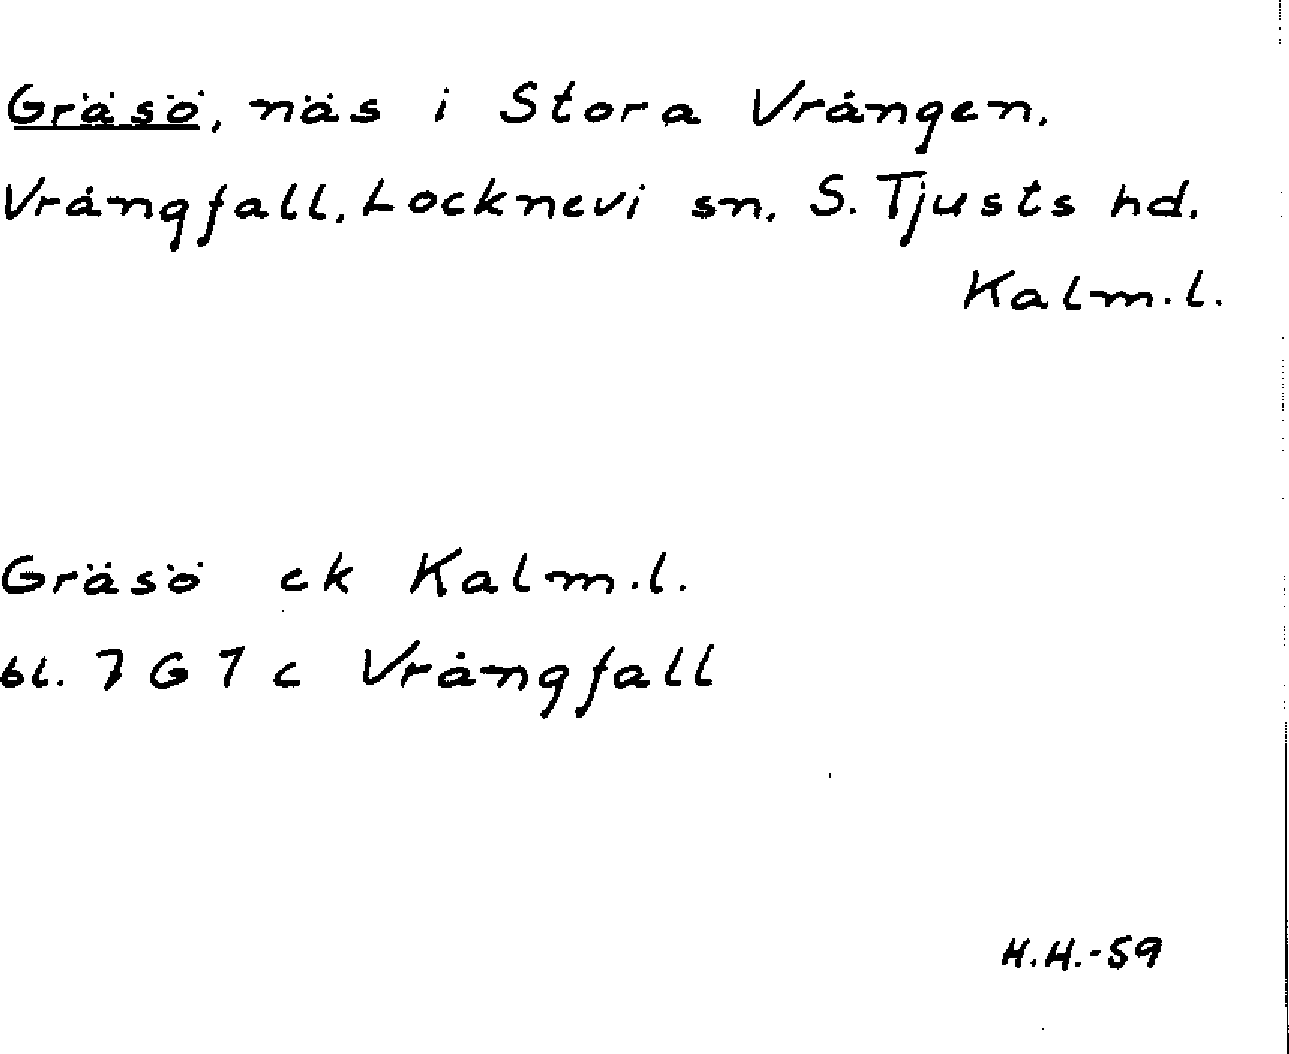 Gräsö, näs i Stora Vrången.
Vrångfall. Locknevi sn. S. Tjusts hd.
Kalm.l.
Gräsö ek Kalm.l.
bl. 7 G 1 c Vrångfall
H.H.-59